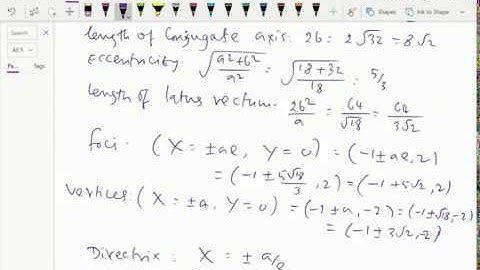 Shapes Ink to Shape
Search
All N
Pa...
length of Conjugate axis: 2b: 2√32 = 8√2
Eccentricity √(a²+b²/a²) = √(18+32/18) = 5/3
length of latus rectum. 2b²/a = 64/√18 = 64/3√2
foci: (X = ±ae, Y = 0) = (-1±ae, 2)
= (-1 ± 5√18/3, 2) = (-1 ± 5√2, -2)
Vertices: (X = ±a, Y = 0) = (-1±a, -2) = (-1±√18, -2)
= (-1 ± 3√2, -2)
Directrix: X = ± a/e